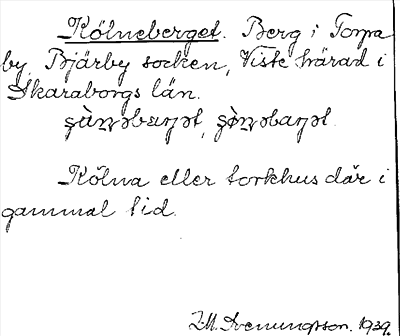 Kölneberget. Berg i Torpa
by, Bjärby socken, Viste härad i
Skaraborgs län.
Kölna eller torkhus där i
gammal tid.
M. Svenungsson. 1939.